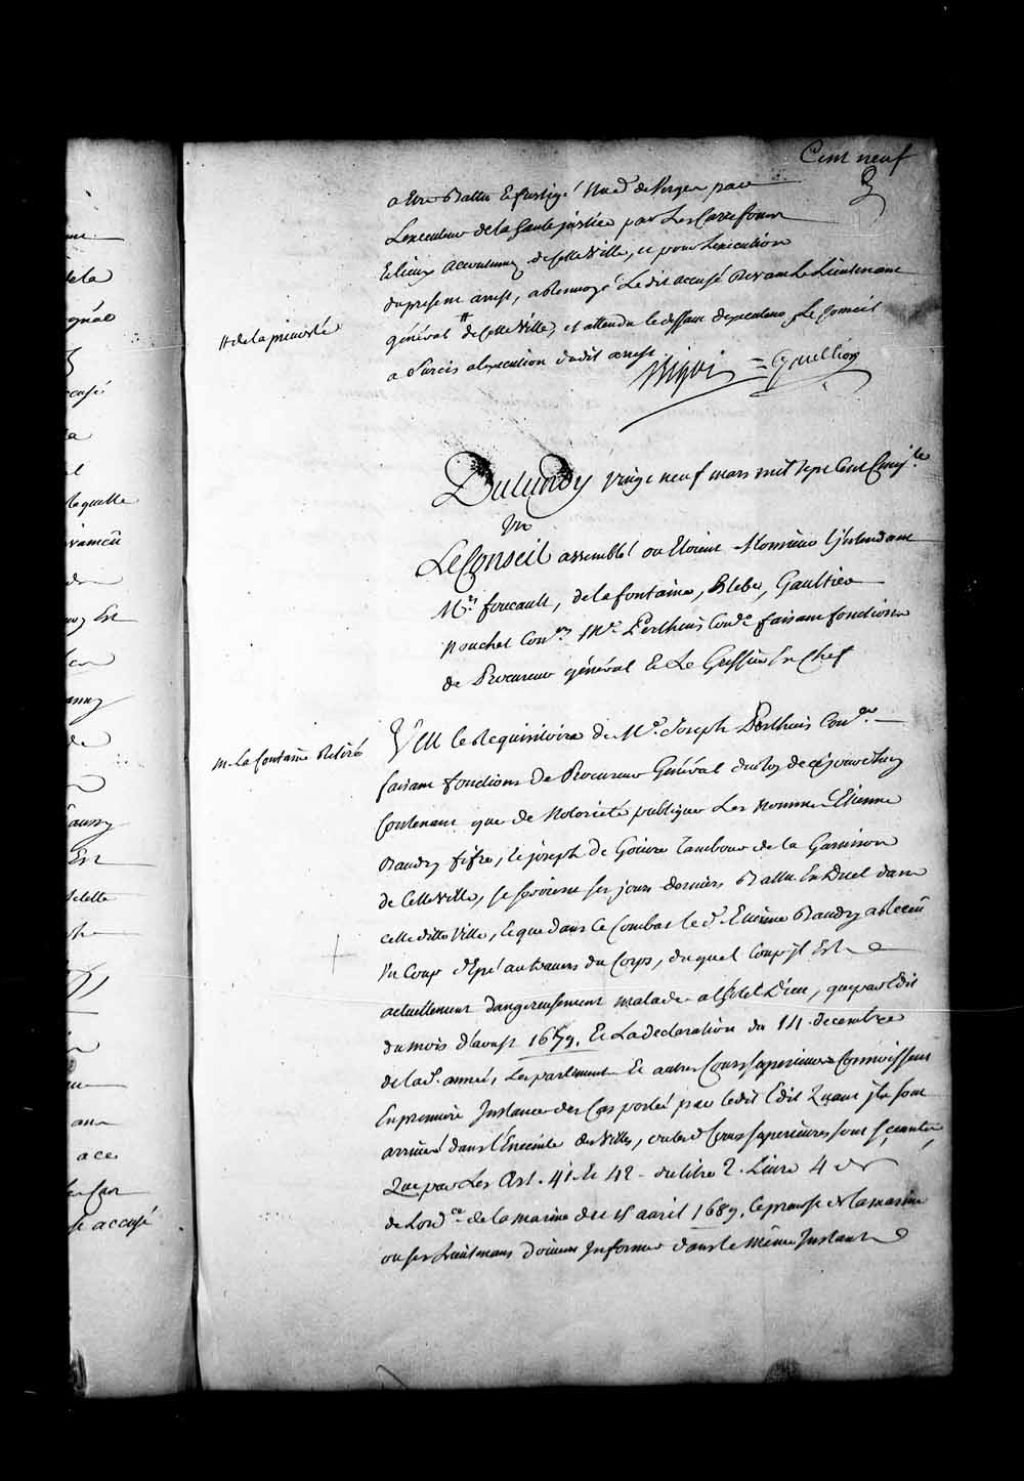 Cent neuf
a Etre Battu Et fustigé Nud de Verges par
Lexecuteur de la haute justice par Les Carrefours
Et lieux accoutumez de Cette Ville, et pour Lexecution
du present arrest, a Renvoyé Ledit accusé Devant Le Lieutenant
# de la prevosté
général # de Cette Ville, et attendu le deffaut dexecuteur Le Conseil
a Surcis a lexecution dudit arrest
Bigot = Guillimin
Du Lundy vingt neuf mars mil sept Cent Cinq.te
Un
Le Conseil assemblé ou Etoient Monsieur L'jntendant
M.rs foucault, de la fontaine, Gaultier
Nouchet Con.ers M.e Perthuis Con.er faisant fonctions
de Procureur général Et Le Greffier En Chef
m. La fontaine Retiré
VEU le Requisitoire de M.e Joseph Perthuis Con.er
faisant fonctions De Procureur Général du Roy de cejourdhuy
Contenant que de Notorieté publique Les Nommés Etienne
Baudry fifre, & joseph de Goivre Tambour de la Garnison
de Cette Ville, se seroient ses jours derniers Battu En Duel dans
cette ditte Ville, & que dans Ce Combat le d. Etienne Baudry a Receu
Un Coup d'Epé au travers du Corps, duquel Coup jl Est
actuellement dangereusement malade a l'hotel Dieu, que par Edit
du mois d'aoust 1679. Et La declaration du 14. decembre
de lad. année, Les parlements Et autres Cours Superieures Connoissent
En premiere Jnstance des Cas portés par ledit Edit Quant jls sont
arrivés dans l'Enceinte des Villes, ou lesd. Cours superieures sont séeantes,
Que par Les Art. 41. Et 42. du titre 2. Livre 4 de
de Lord.ce de la marine du 15 avril 1689. Le prevost de la marine
ou ses Lieutenans doivent Jnformer dans le même Jnstant